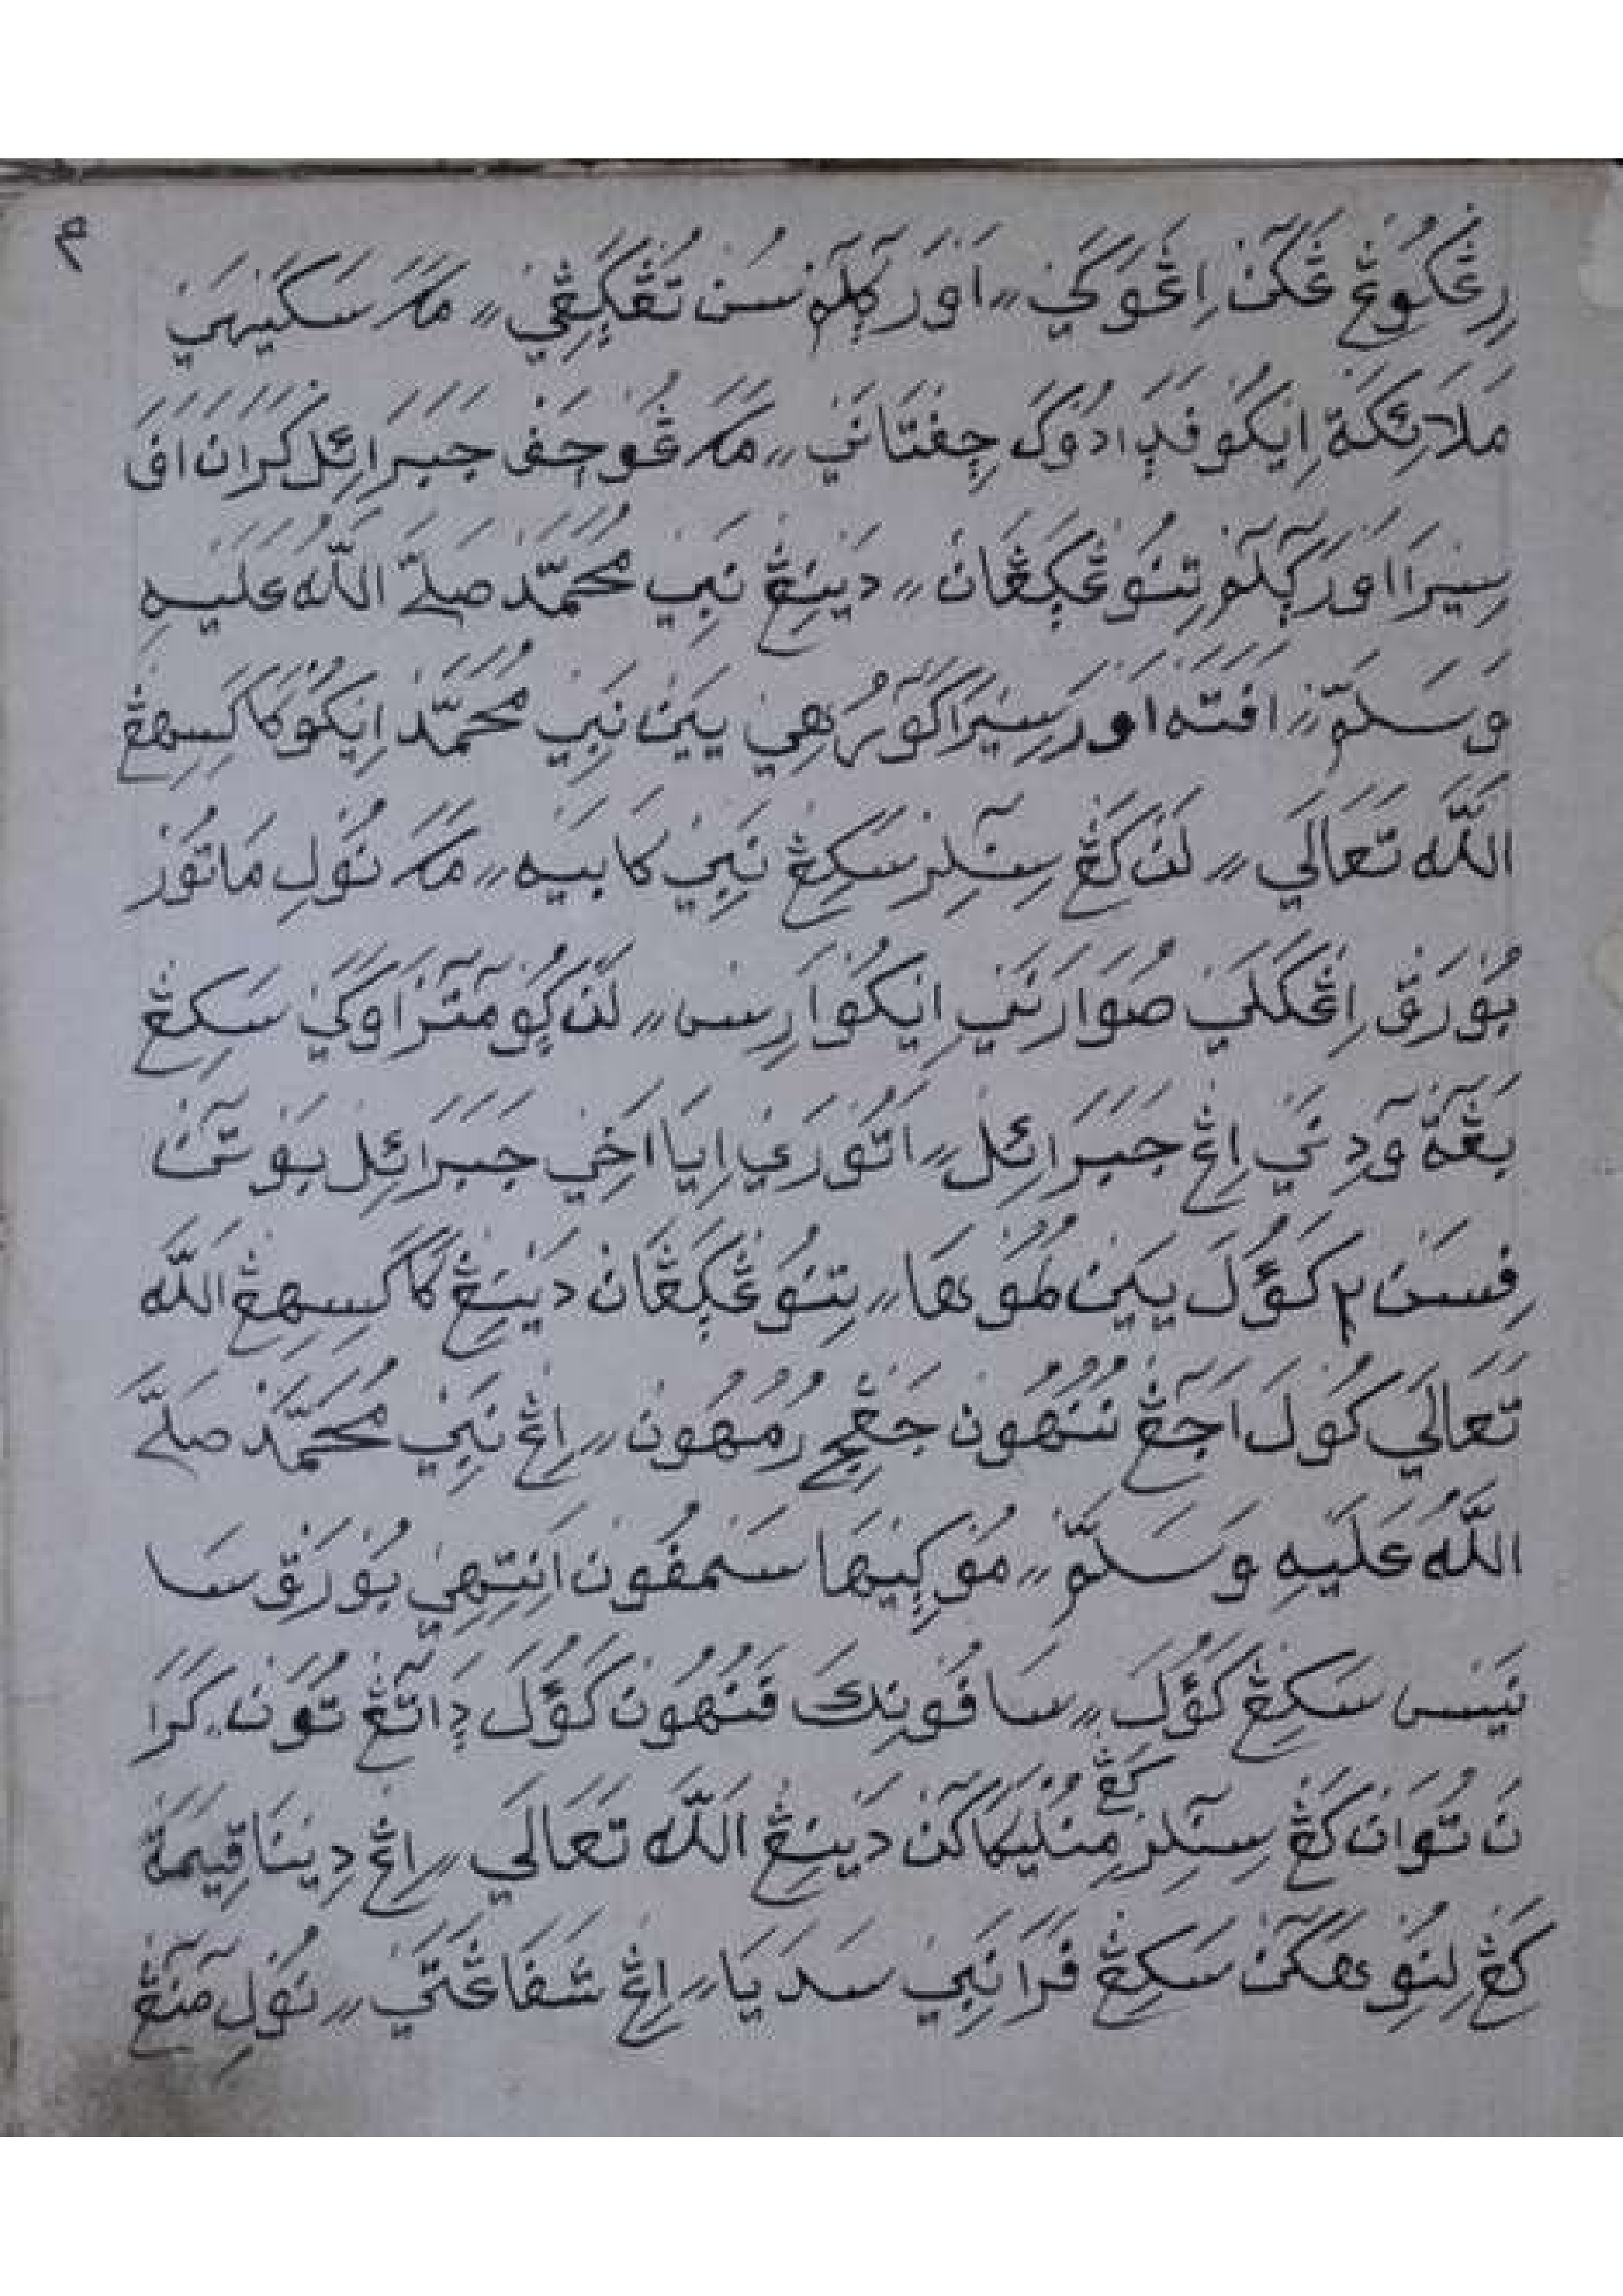 م
رِڠْكُوڠْ ڠَكٓنْ اِڠْوَكَيْ ⹁⹁ اَوَرْ كٓلٓمْ سُنْ تُڠْكَڠِيْ ⹁⹁ مَكَ سَكَيْنَيهَيْ
مَلَائِكَةْ اِيْكُوْ فَدَ ادُوْكْ چِفْتَانَيْ ⹁⹁ مَكَ ڠُوْچَفْ جَبَرَائِلْ كَرَانَ اَفَ
سِيْرَا اَوَرْ كٓلٓمْ تِنُوْڠْكَڠَانْ ⹁⹁ دَيْنِيْڠْ نَبِيْ مُحَمَّدْ صَلَّى اللّٰهُ عَلَيْهِ
وَسَلَّمَ ⹁⹁ اَفَتَهْ اَوَرْ سِيْرَا كَوْرُهِيْ يَيْنْ نَبِيْ مُحَمَّدْ اِيْكُوْ كَاكَسِيهِڠْ
اللّٰه تَعَالَى ⹁⹁ لَنْ كَڠْ سِنٓلِرْ سَكِڠْ نَبِيْ كَابَيْه ⹁⹁ مَكَ نُوْلِ مَاتُوْرْ
بُوْرَقْ اِڠْكَلَيْ صُوَارَنَيْ اِيْكُوْ اَرِسْ ⹁⹁ لَنْ كُوْمٓتٓرْ اَوَكَيْ سَكِڠْ
بَڠٓةْ وٓدِنَيْ اِڠْ جَبَرَائِلْ ⹁⹁ اَتُوْرَيْ اِيَا اَخِيْ جَبَرَائِلْ بَوْتٓنْ
فِسَنْ٢ كَوُلَ يَيْنْ لُمُوْهَا ⹁⹁ تِنُوْڠْكَڠَانْ دَيْنِيْڠْ كَاكَسِيهِڠْ اللّٰه
تَعَالَى كَوُلَ اَجٓڠْ نُنُهُوْنْ جَڠْجِ رُمُهُوْنْ ⹁⹁ اِڠْ نَبِيْ مُحَمَّدْ صَلَّى
اللّٰهُ عَلَيْهِ وَسَلَّمَ ⹁⹁ مُوْكِيْهَا سَمْفُوْنْ اَنْتِهِيْ بُوْرَقْ سَا
نَيْسْ سَكِڠْ كَوُلَ ⹁⹁ سَافُوْنِكَ فَنُهُوْنْ كَوُلَ دَاتٓڠْ تُوَنْ ⹁⹁ كَرَا
نَ تُوَانْ كَڠْ سِنٓلِرْ كَڠْ مِنُلْيَكَاكٓنْ دَيْنِيْڠْ اللّٰه تَعَالَى ⹁⹁ اِڠْ دِيْنَا قِيَمَةْ
كَڠْ لِنُوِهَكٓنْ سَكِڠْ فَرَا نَبِيْ سَدَيَا ⹁⹁ اِڠْ شَفَاعَتَيْ ⹁⹁ نُوْلِ مٓنٓڠْ